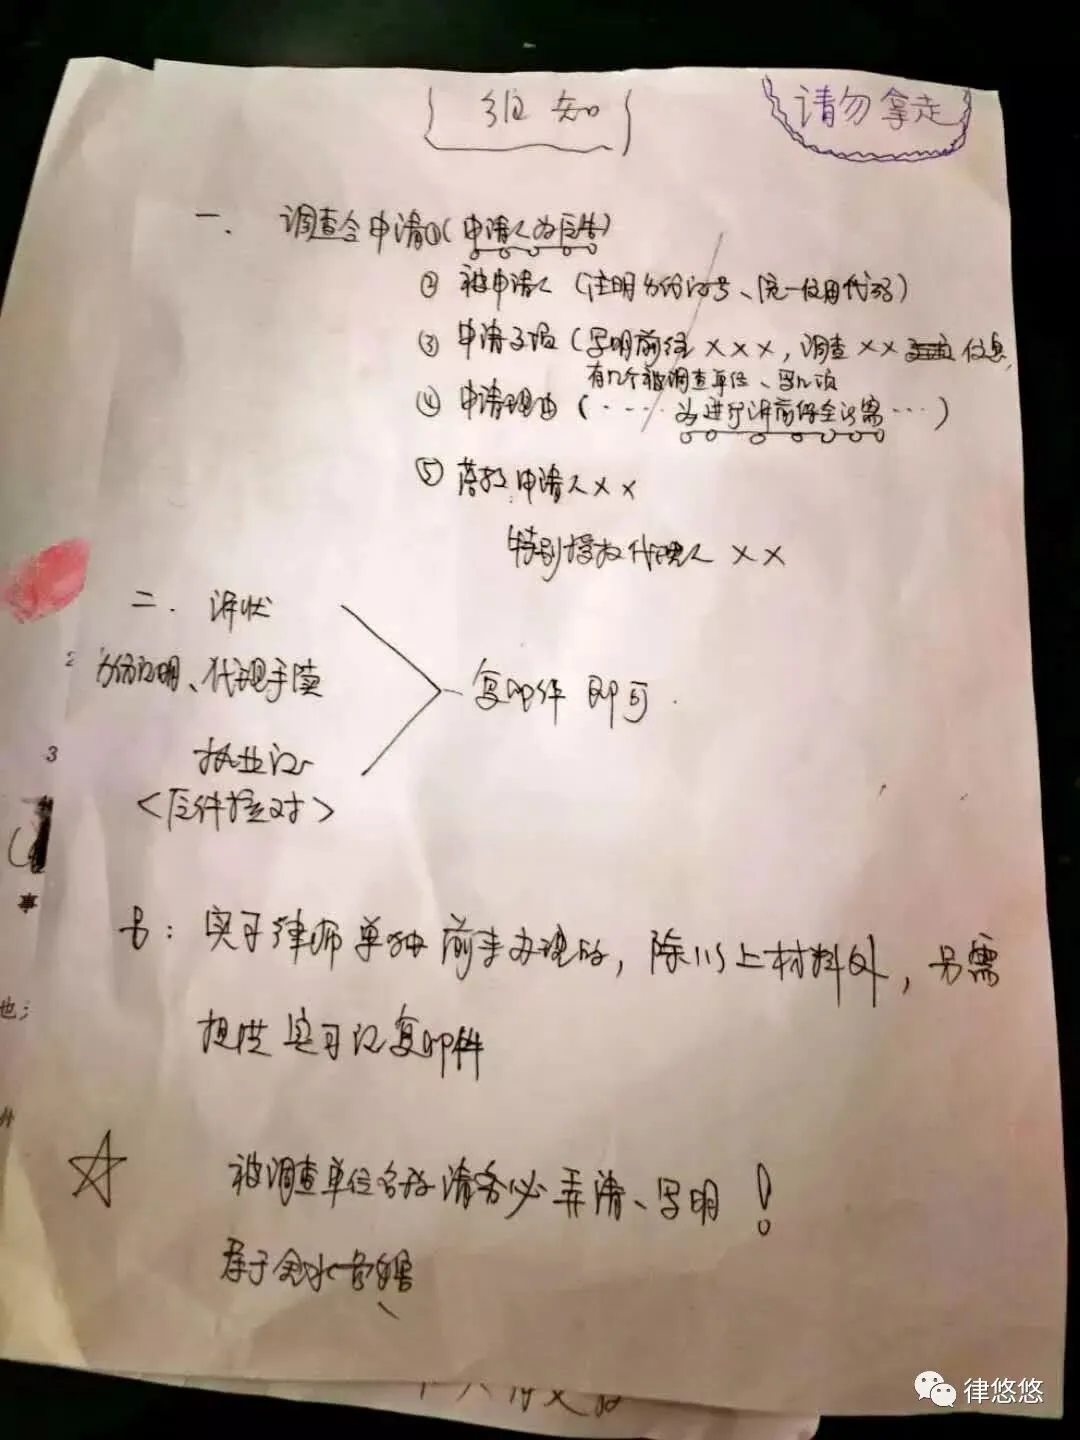 须知
请勿拿走
一. 调查令申请①(申请人为原告)
② 被申请人 (注明身份证号、统一信用代码)
③ 申请事项 (写明前往×××, 调查×× 信息,
有几个被调查单位、写几项
④ 申请理由 (···· 为进行诉前保全所需···)
⑤ 落款 申请人××
特别授权代理人 ××
二. 诉状
身份证明、代理手续
复印件即可.
执业证
<原件核对>
2
3
另: 实习律师单独前来办理的, 除以上材料外, 另需
提供实习证复印件
被调查单位名称请务必弄清、写明!
属于金水管辖
律悠悠